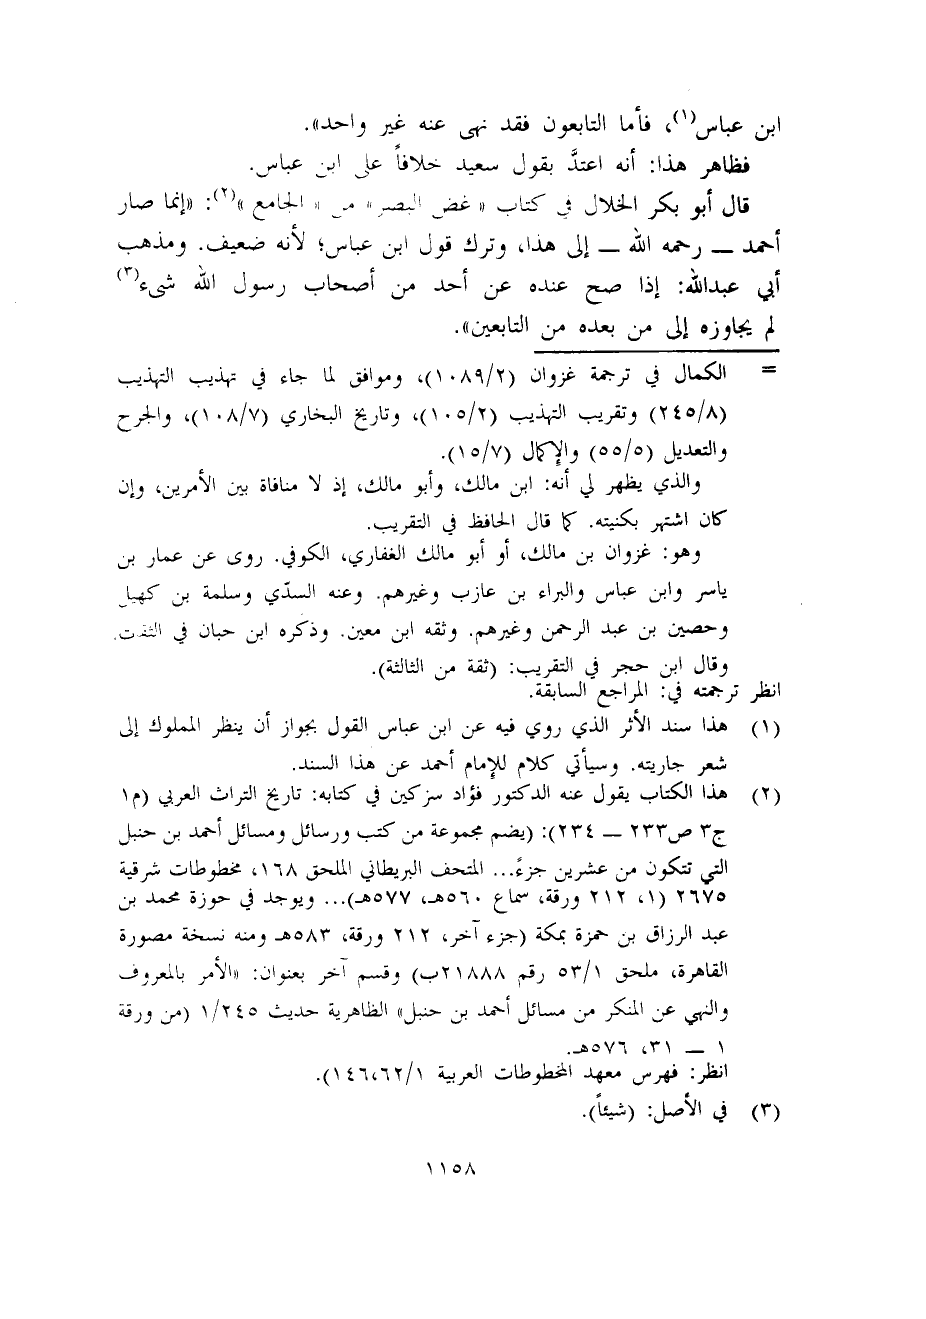 ابن عباس(١)، فأما التابعون فقد نهى عنه غير واحد».
فظاهر هذا: أنه اعتدَّ بقول سعيد خلافاً على ابن عباس.
قال أبو بكر الخلال في كتاب «غض البصر» من «الجامع»(٢): «إنما صار
أحمد ــ رحمه الله ــ إلى هذا، وترك قول ابن عباس؛ لأنه ضعيف. ومذهب
أبي عبدالله: إذا صح عنده عن أحد من أصحاب رسول الله شىء(٣)
لم يجاوزه إلى من بعده من التابعين».
= الكمال في ترجمة غزوان (١٠٨٩/٢)، وموافق لما جاء في تهذيب التهذيب
(٢٤٥/٨) وتقريب التهذيب (١٠٥/٢)، وتاريخ البخاري (١٠٨/٧)، والجرح
والتعديل (٥٥/٥) والإكمال (١٥/٧).
والذي يظهر لي أنه: ابن مالك، وأبو مالك، إذ لا منافاة بين الأمرين، وإن
كان اشتهر بكنيته. كما قال الحافظ في التقريب.
وهو: غزوان بن مالك، أو أبو مالك الغفاري، الكوفي. روى عن عمار بن
ياسر وابن عباس والبراء بن عازب وغيرهم. وعنه السدّي وسلمة بن كهيل
وحصين بن عبد الرحمن وغيرهم. وثقه ابن معين. وذكره ابن حبان في الثقات.
وقال ابن حجر في التقريب: (ثقة من الثالثة).
انظر ترجمته في: المراجع السابقة.
(١) هذا سند الأثر الذي روي فيه عن ابن عباس القول بجواز أن ينظر المملوك إلى
شعر جاريته. وسيأتي كلام للإمام أحمد عن هذا السند.
(٢) هذا الكتاب يقول عنه الدكتور فؤاد سزكين في كتابه: تاريخ التراث العربي (م١
ج٣ ص٢٣٣ ــ ٢٣٤): (يضم مجموعة من كتب ورسائل ومسائل أحمد بن حنبل
التي تتكون من عشرين جزءً... المتحف البريطاني الملحق ١٦٨، مخطوطات شرقية
٢٦٧٥ (١، ٢١٢ ورقة، سماع ٥٦٠هـ، ٥٧٧هـ)... ويوجد في حوزة محمد بن
عبد الرزاق بن حمزة بمكة (جزء آخر، ٢١٢ ورقة، ٥٨٣هـ ومنه نسخة مصورة
القاهرة، ملحق ٥٣/١ رقم ٢١٨٨٨ب) وقسم آخر بعنوان: «الأمر بالمعروف
والنهي عن المنكر من مسائل أحمد بن حنبل» الظاهرية حديث ١/٢٤٥ (من ورقة
١ ــ ٣١، ٥٧٦هـ.
انظر: فهرس معهد المخطوطات العربية ١٤٦،٦٢/١).
(٣) في الأصل: (شيئاً).
١١٥٨